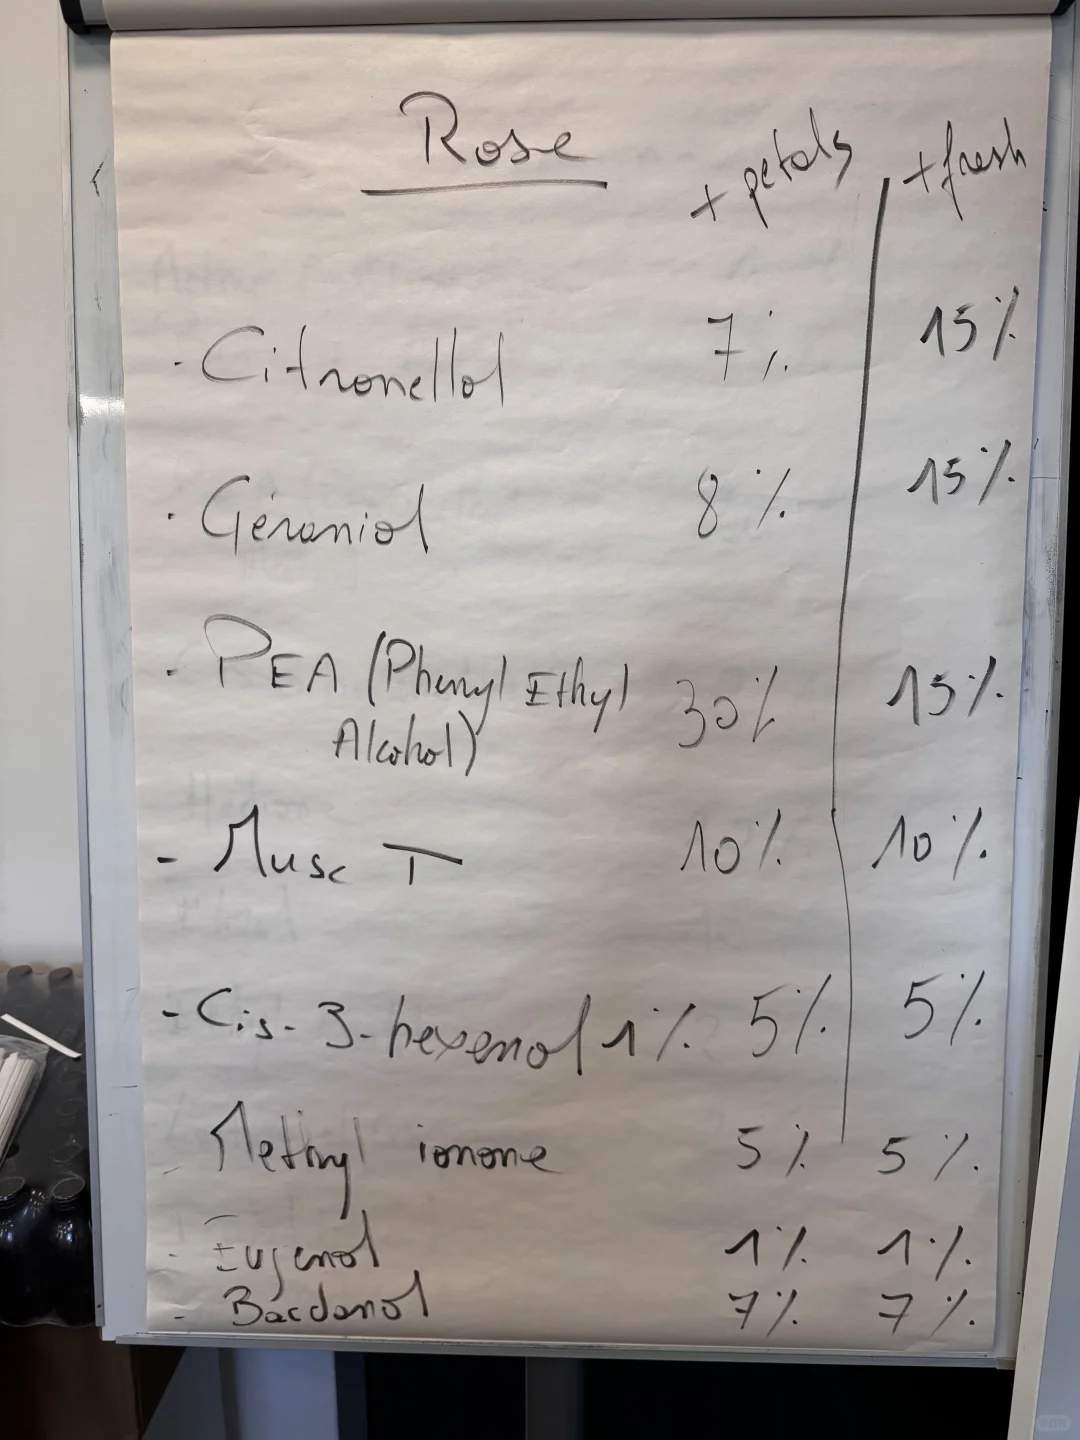 Rose + petals + fresh
- Citronellol 7% 15%
- Géraniol 8% 15%
- PEA (Phenyl Ethyl 30% 15%
Alcohol)
- Musc T 10% 10%
- Cis-3-hexenol 1% 5% 5%
- Methyl ionone 5% 5%
- Eugenol 1% 1%
- Bacdanol 7% 7%